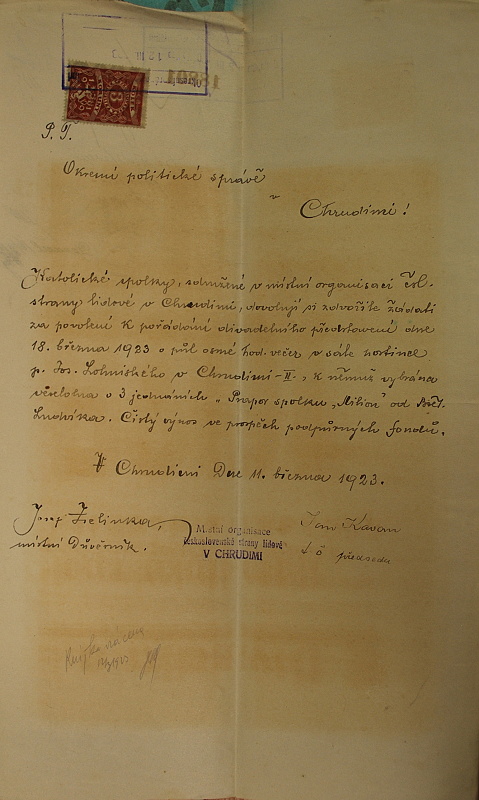 P. T.
Okresní politické správě
v
Chrudimi!
Katolické spolky, sdružené v místní organisaci Čsl.
strany lidové v Chrudimi, dovolují si zdvořile žádati
za povolení k pořádání divadelního představení dne
18. března 1923 o půl osmé hod. večer v sále hostince
p. Jos. v Chrudimi-II., k němuž vybrána
veselohra o 3 jednáních „Prapor spolku „Milion" od
Ludvíka. Čistý výnos ve prospěch podpůrných fondů.
V Chrudimi Dne 11. března 1923.
Josef Zelinka,
místní Důvěrník.
Místní organisace
československé strany lidové
V CHRUDIMI
Jan Kavan
předseda